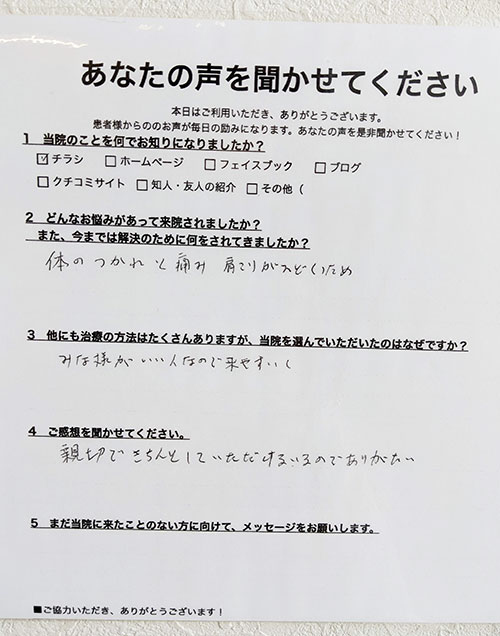 あなたの声を聞かせてください
本日はご利用いただき、ありがとうございます。
患者様からののお声が毎日の励みになります。あなたの声を是非聞かせてください！
1 当院のことを何でお知りになりましたか？
☑チラシ □ホームページ □フェイスブック □ブログ
□クチコミサイト □知人・友人の紹介 □その他（
2 どんなお悩みがあって来院されましたか？
また、今までは解決のために何をされてきましたか？
体のつかれと痛み 肩こりがひどいため
3 他にも治療の方法はたくさんありますが、当院を選んでいただいたのはなぜですか？
みな様がいい人なので来やすい
4 ご感想を聞かせてください。
親切できちんとしていただけるいるのでありがたい
5 まだ当院に来たことのない方に向けて、メッセージをお願いします。
■ご協力いただき、ありがとうございます！